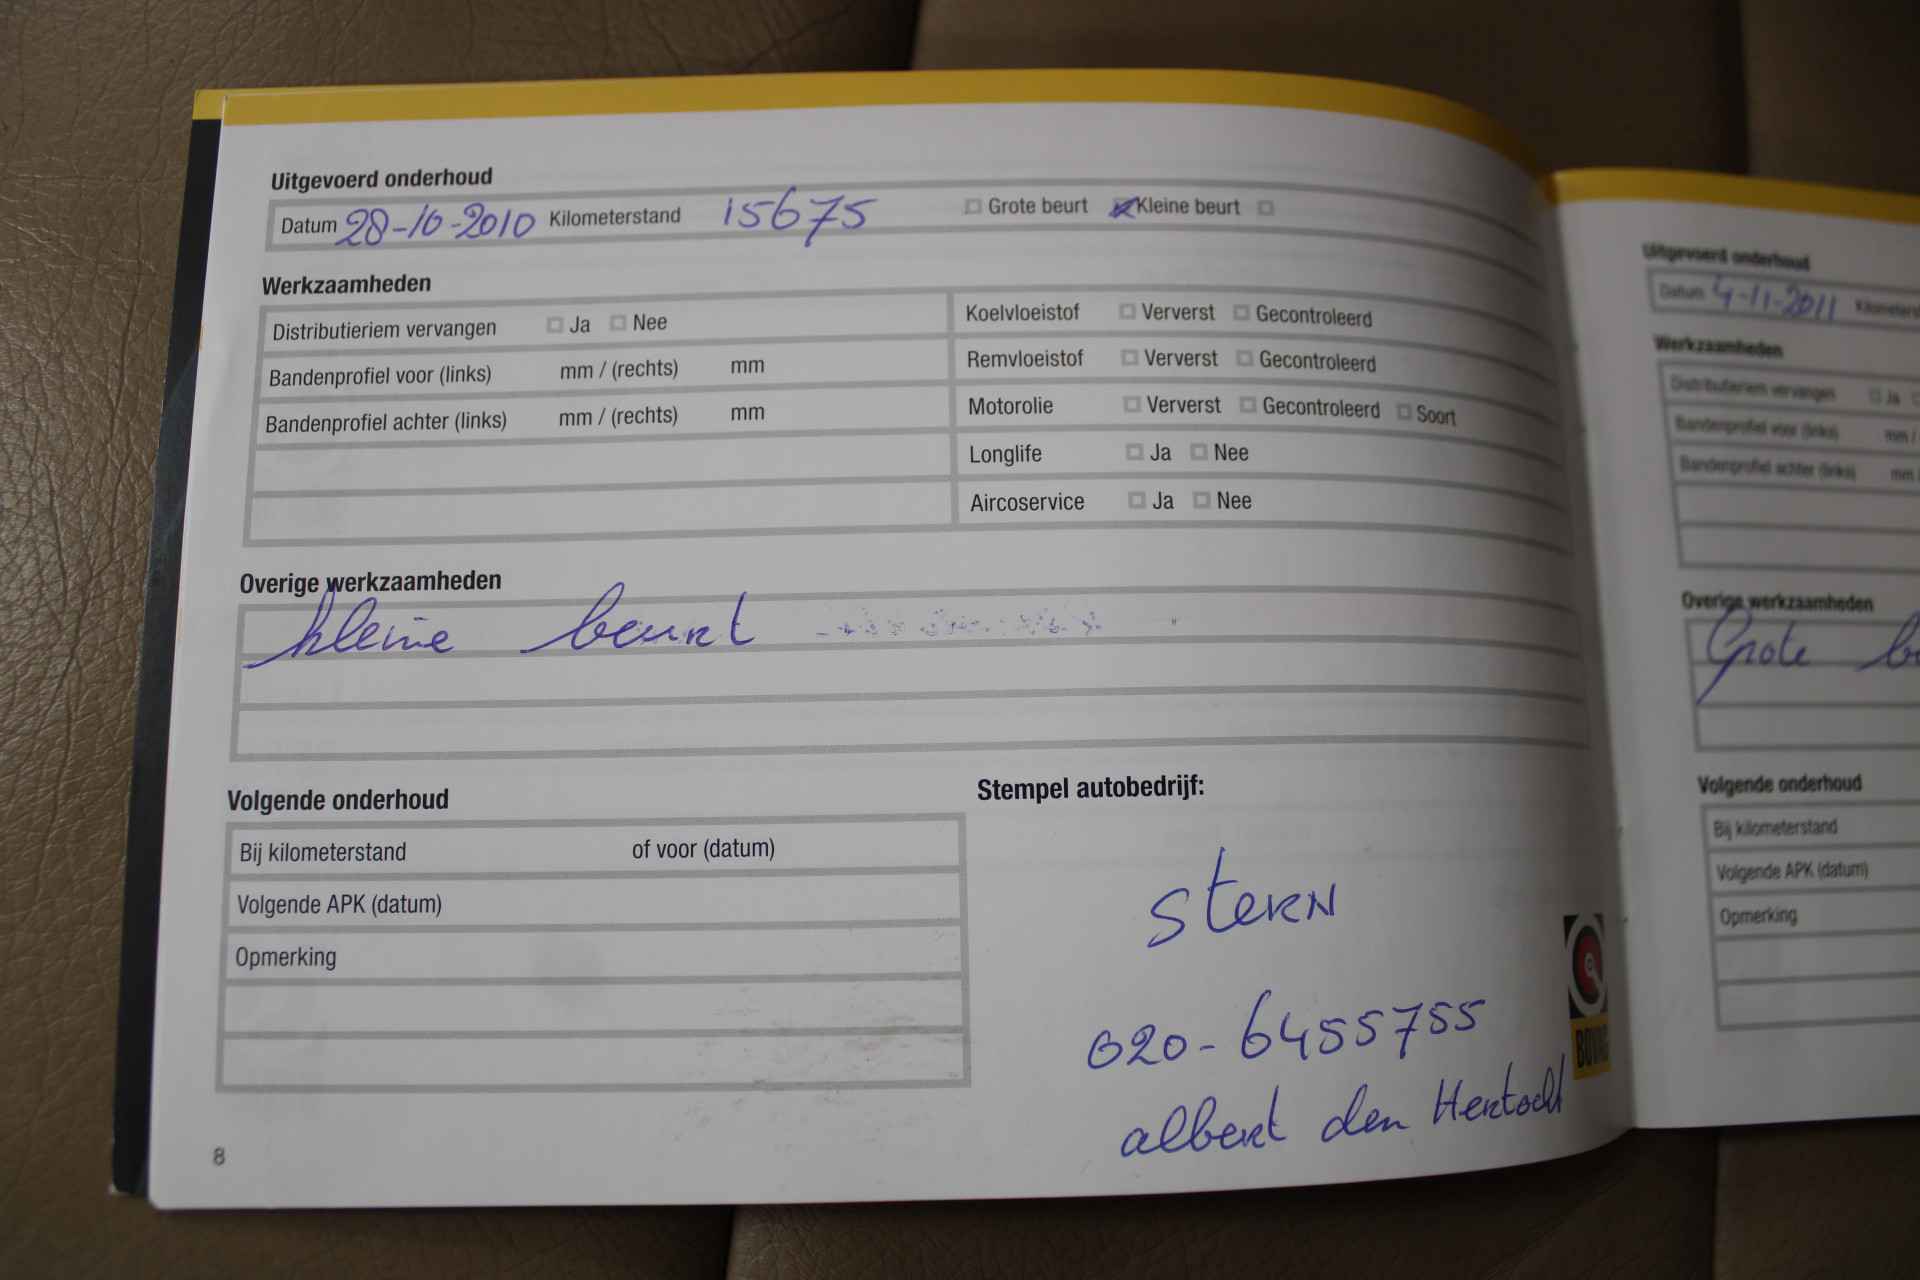 Uitgevoerd onderhoud
Datum 28-10-2010 Kilometerstand 15675 Grote beurt Kleine beurt
Werkzaamheden
Distributieriem vervangen Ja Nee
Bandenprofiel voor (links) mm / (rechts) mm
Bandenprofiel achter (links) mm / (rechts) mm
Koelvloeistof Ververst Gecontroleerd
Remvloeistof Ververst Gecontroleerd
Motorolie Ververst Gecontroleerd Soort
Longlife Ja Nee
Aircoservice Ja Nee
Overige werkzaamheden
kleine beurt
Volgende onderhoud
Bij kilometerstand of voor (datum)
Volgende APK (datum)
Opmerking
Stempel autobedrijf:
Stern
020-6455755
albert den Hertoch
8
Uitgevoerd onderhoud
Datum 4-11-2011
Werkzaamheden
Distributieriem vervangen Ja
Bandenprofiel voor (links) mm /
Bandenprofiel achter (links) mm
Overige werkzaamheden
Grote
Volgende onderhoud
Bij kilometerstand
Volgende APK (datum)
Opmerking